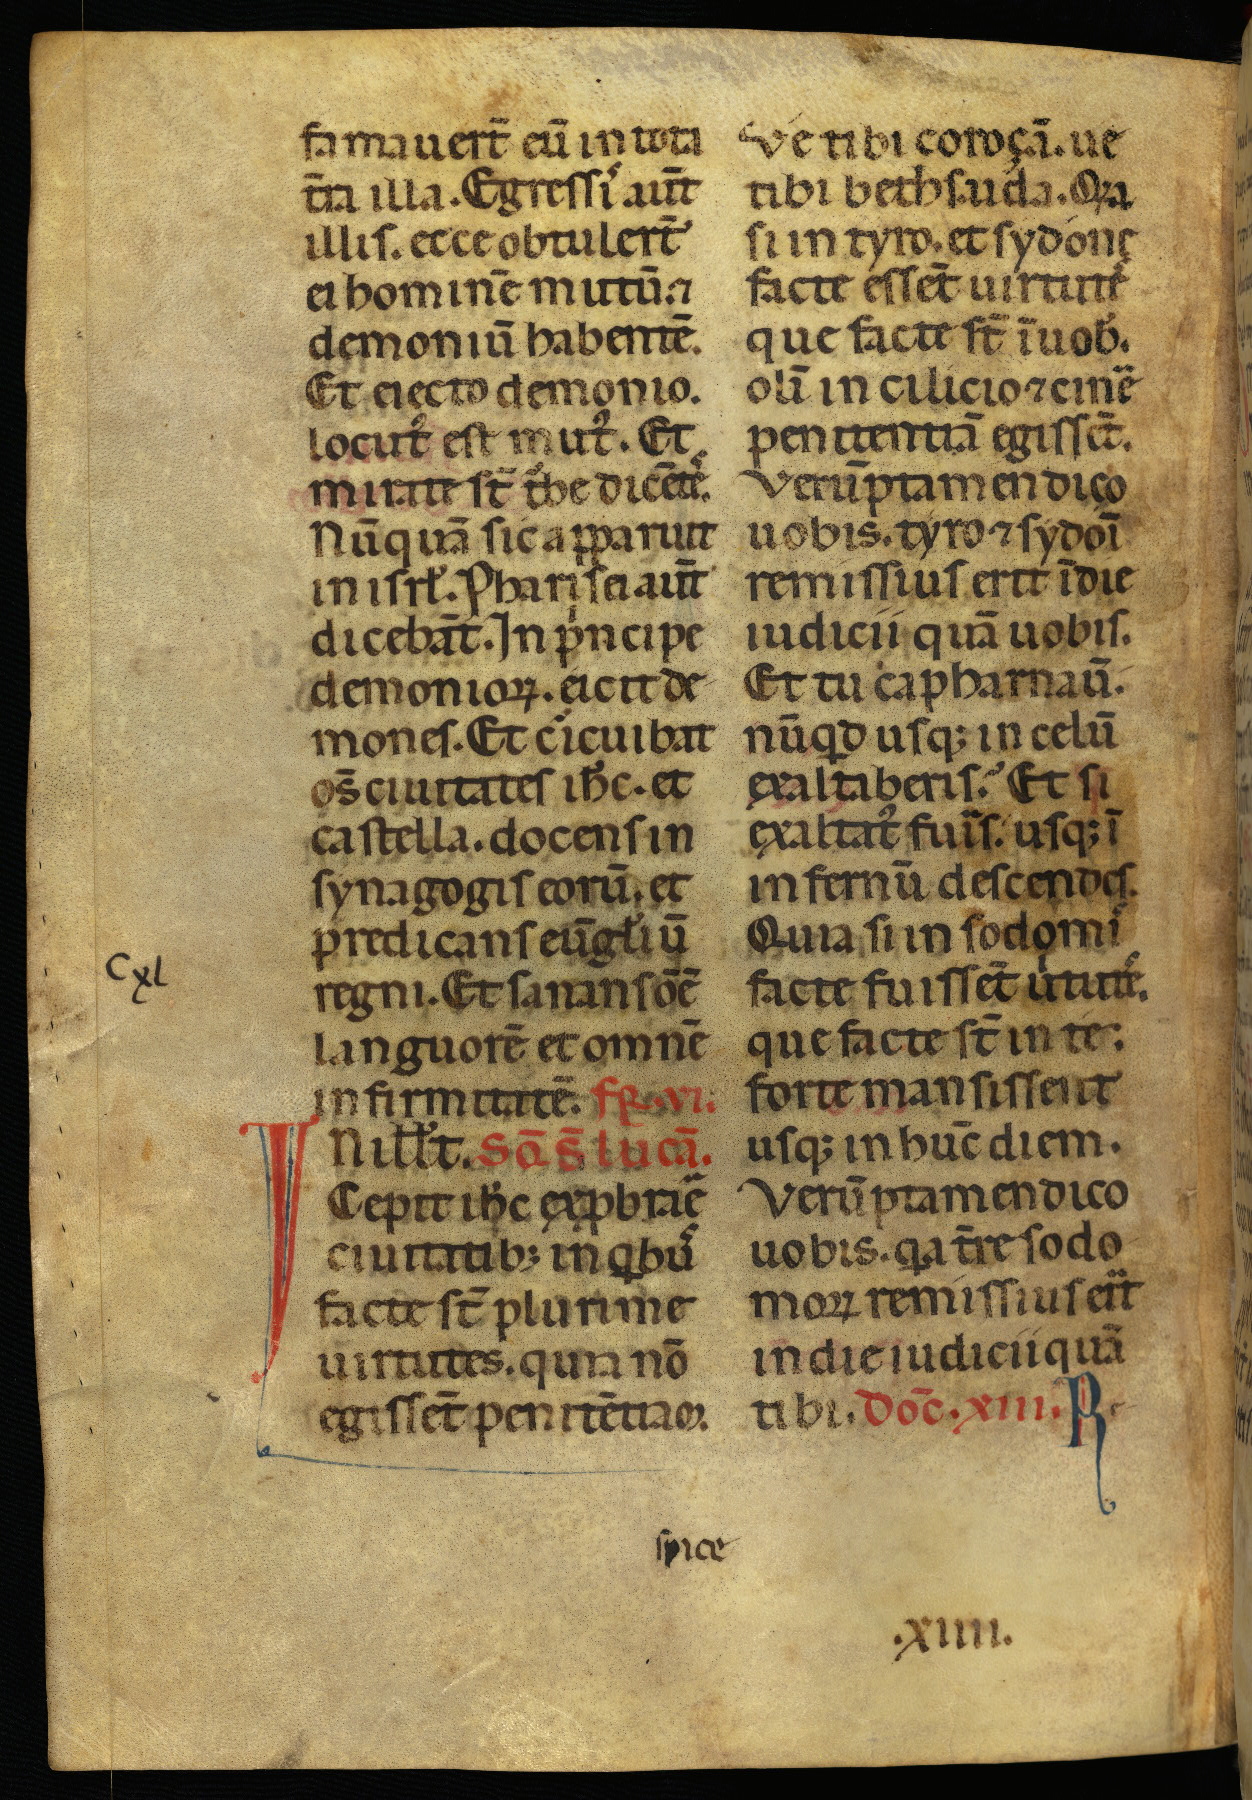 famauert̄ eū in tota
t̄ra illa. Egressi' aut̄
illis. ecce obtulert̄
ei hominē mutū. ⁊
demoniū habentē.
Et eiecto demonio.
locut᷒ est mut᷒. Et
mirate st̄ t͛be dicētes.
Nūquā sic apparuit
in isrl̄. Pharisei aut̄
dicebāt. In p͛ncipe
demonioꝝ. eicit de
mones. Et c͛icuibat
os̄ ciuitates ih̄c. et
castella. docens in
synagogis eorū. et
predicans eūgl̄iū
regni. Et sanans ōē
languorē et omnē
infirmitatē. fꝶ. vi.
IN ill̄ t. Sc̄d̄ lucā.
Cepit ih̄c exp̱brar̄e
ciuitatib; in qͥbus
facte st̄ plurime
uirtutes. quia nō
egissēt penitētiaꝫ.
Ve tibi coroçaī. ue
tibi bethsaida. Qͥa
si in tyro. et sydone
facte essēt uirtutes
que facte st̄ ī uob̄.
olī in cilicio ⁊ cin̄e
penitentiā egissēt.
Verūptamen dico
uobis. tyro ⁊ sydoī
remissius erit ī die
iudicii quā uobis.
Et tu capharnaū.
nūqͥd usq; in celū
exaltaberis. Et si
exaltat᷒ fuis. usq; ī
infernū descendes.
Quia si in sodomis
facte fuissēt uͥtutes.
que facte st̄ in te;
forte mansissent
usq; in hūc diem.
Verūptamen dico
uobis. qͥa t̄re sodo
moꝝ remissius eͥit
in die iudicii quā
tibi. Doc̄. xiii. Re
Cxl
spice
.xiiii.